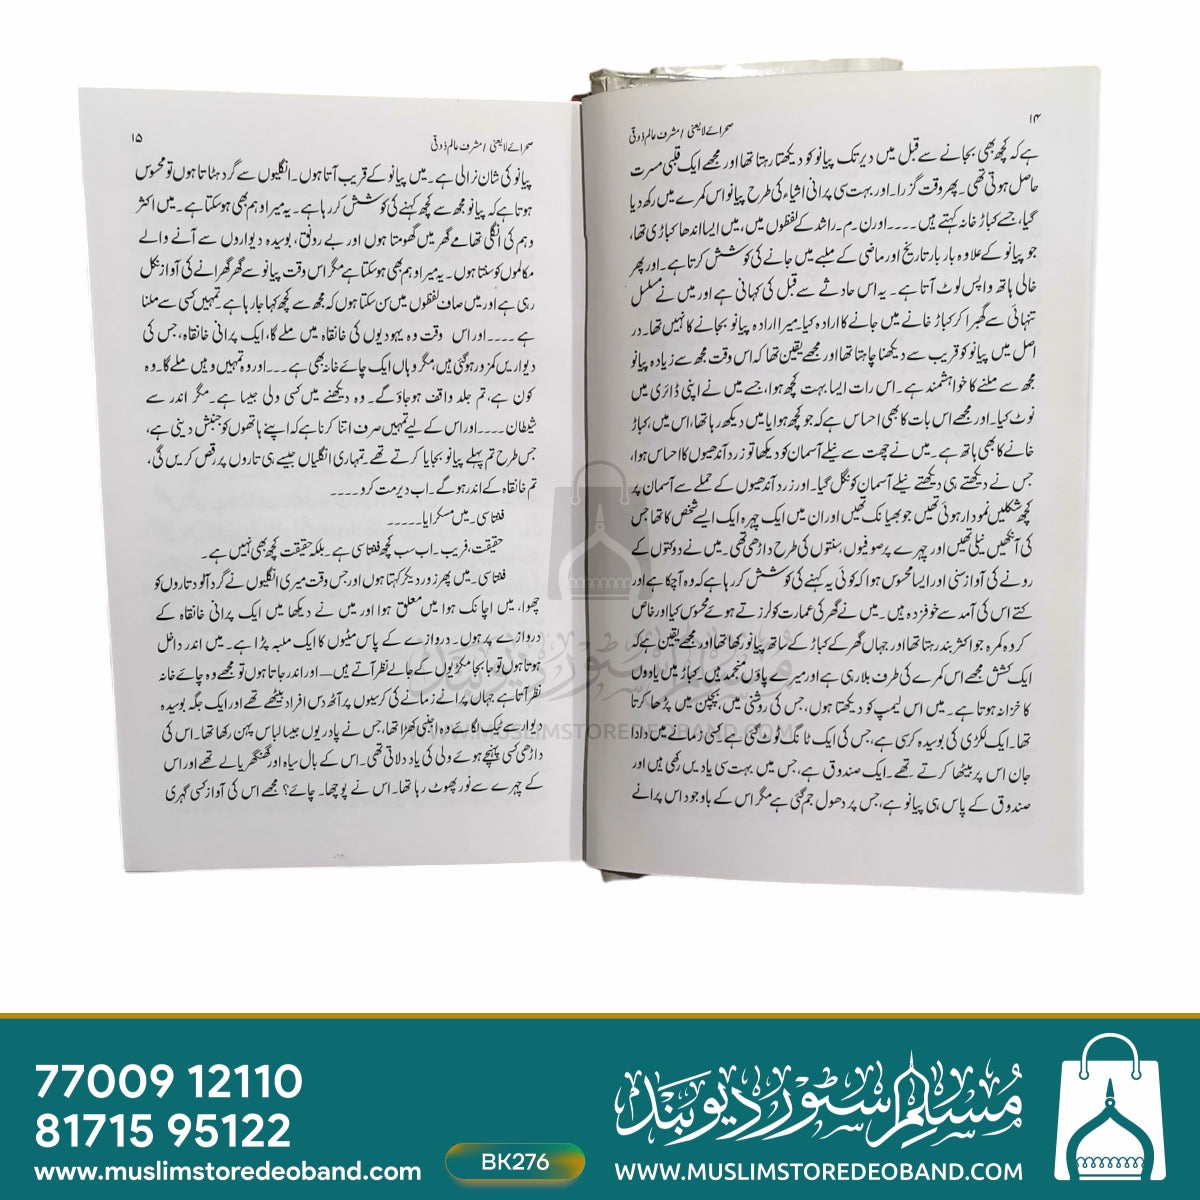 ۱۴
صحرائے لایعنی / مشرف عالم ذوقی
ہے کہ کچھ بھی بجانے سے قبل میں دیر تک پیانو کو دیکھتا رہتا تھا اور مجھے ایک قلبی مسرت
حاصل ہوتی تھی۔ پھر وقت گزرا۔ اور بہت سی پرانی اشیاء کی طرح پیانو اس کمرے میں رکھ دیا
گیا، جسے کباڑ خانہ کہتے ہیں۔۔۔۔اور ن۔م۔راشد کے لفظوں میں، میں ایسا اندھا کباڑی تھا،
جو پیانو کے علاوہ بار بار تاریخ اور ماضی کے ملبے میں جانے کی کوشش کرتا ہے۔ اور پھر
خالی ہاتھ واپس لوٹ آتا ہے۔ یہ اس حادثے سے قبل کی کہانی ہے اور میں نے مسلسل
تنہائی سے گھبرا کر کباڑ خانے میں جانے کا ارادہ کیا۔ میرا ارادہ پیانو بجانے کا نہیں تھا۔ در
اصل میں پیانو کو قریب سے دیکھنا چاہتا تھا اور مجھے یقین تھا کہ اس وقت مجھ سے زیادہ پیانو
مجھ سے ملنے کا خواہشمند ہے۔ اس رات ایسا بہت کچھ ہوا، جسے میں نے اپنی ڈائری میں
نوٹ کیا۔ اور مجھے اس بات کا بھی احساس ہے کہ جو کچھ ہوا یا میں دیکھ رہا تھا، اس میں، کباڑ
خانے کا بھی ہاتھ ہے۔ میں نے چھت سے نیلے آسمان کو دیکھا تو زرد آندھیوں کا احساس ہوا،
جس نے دیکھتے ہی دیکھتے نیلے آسمان کو نگل گیا۔ اور زرد آندھیوں کے حملے سے آسمان پر
کچھ شکلیں نمودار ہوئی تھیں جو بھیانک تھیں اور ان میں ایک چہرہ ایک ایسے شخص کا تھا جس
کی آنکھیں نیلی تھیں اور چہرے پر صوفیوں، سنتوں کی طرح داڑھی تھی۔ میں نے دو کتوں کے
رونے کی آواز سنی اور ایسا محسوس ہوا کہ کوئی یہ کہنے کی کوشش کر رہا ہے کہ وہ آ چکا ہے اور
کتے اس کی آمد سے خوفزدہ ہیں۔ میں نے گھر کی عمارت کو لرزتے ہوئے محسوس کیا اور خاص
کر وہ کمرہ جو اکثر بند رہتا تھا اور جہاں گھر کے کباڑ کے ساتھ پیانو رکھا تھا اور مجھے یقین ہے کہ
ایک کشش مجھے اس کمرے کی طرف بلا رہی ہے اور میرے پاؤں منجمد ہیں۔ کباڑ میں یادوں
کا خزانہ ہوتا ہے۔ میں اس لیمپ کو دیکھتا ہوں، جس کی روشنی میں، بچپن میں پڑھا کرتا
تھا۔ ایک لکڑی کی بوسیدہ کرسی ہے، جس کی ایک ٹانگ ٹوٹ گئی ہے کسی زمانے میں دادا
جان اس پر بیٹھا کرتے تھے۔ ایک صندوق ہے، جس میں بہت سی یادیں رکھی ہیں اور
صندوق کے پاس ہی پیانو ہے، جس پر دھول جم گئی ہے مگر اس کے باوجود اس پرانے
۱۵
صحرائے لایعنی / مشرف عالم ذوقی
پیانو کی شان نرالی ہے۔ میں پیانو کے قریب آتا ہوں۔ انگلیوں سے گرد ہٹاتا ہوں تو محسوس
ہوتا ہے کہ پیانو مجھ سے کچھ کہنے کی کوشش کر رہا ہے۔ یہ میرا وہم بھی ہو سکتا ہے۔ میں اکثر
وہم کی انگلی تھامے گھر میں گھومتا ہوں اور بے رونق، بوسیدہ دیواروں سے آنے والے
مکالموں کو سنتا ہوں۔ یہ میرا وہم بھی ہو سکتا ہے مگر اس وقت پیانو سے گھر گھرانے کی آواز نکل
رہی ہے اور میں صاف لفظوں میں سن سکتا ہوں کہ مجھ سے کچھ کہا جا رہا ہے۔ تمہیں کسی سے ملنا
ہے۔۔۔۔اور اس وقت وہ یہودیوں کی خانقاہ میں ملے گا، ایک پرانی خانقاہ، جس کی
دیواریں کمزور ہو گئی ہیں، مگر وہاں ایک چائے خانہ بھی ہے۔۔۔اور وہ تمہیں وہیں ملے گا۔ وہ
کون ہے، تم جلد واقف ہو جاؤ گے۔ وہ دیکھنے میں کسی ولی جیسا ہے۔ مگر اندر سے
شیطان۔۔۔۔اور اس کے لیے تمہیں صرف اتنا کرنا ہے کہ اپنے ہاتھوں کو جنبش دینی ہے،
جس طرح تم پہلے پیانو بجایا کرتے تھے۔ تمہاری انگلیاں جیسے ہی تاروں پر رقص کریں گی،
تم خانقاہ کے اندر ہو گے۔ اب دیر مت کرو۔۔۔۔
فنتاسی۔ میں مسکرایا۔۔۔۔۔
حقیقت، فریب۔ اب سب کچھ فنتاسی ہے۔ بلکہ حقیقت کچھ بھی نہیں ہے۔
فنتاسی۔ میں پھر زور دیکر کہتا ہوں اور جس وقت میری انگلیوں نے گرد آلود تاروں کو
چھوا، میں اچانک ہوا میں معلق ہوا اور میں نے دیکھا میں ایک پرانی خانقاہ کے
دروازے پر ہوں۔ دروازے کے پاس مٹیوں کا ایک ملبہ پڑا ہے۔ میں اندر داخل
ہوتا ہوں تو جا بجا مکڑیوں کے جالے نظر آتے ہیں۔۔۔اور اندر جاتا ہوں تو مجھے وہ چائے خانہ
نظر آتا ہے جہاں پرانے زمانے کی کرسیوں پر آٹھ دس افراد بیٹھے تھے اور ایک جگہ بوسیدہ
دیوار سے ٹیک لگائے وہ اجنبی کھڑا تھا، جس نے پادریوں جیسا لباس پہن رکھا تھا۔ اس کی
داڑھی کسی پہنچے ہوئے ولی کی یاد دلاتی تھی۔ اس کے بال سیاہ اور گھنگھریالے تھے اور اس
کے چہرے سے نور پھوٹ رہا تھا۔ اس نے پوچھا۔ چائے؟ مجھے اس کی آواز کسی گہری
مسلم سٹور دیوبند
WWW.MUSLIMSTOREDEOBAND.COM
77009 12110
81715 95122
www.muslimstoredeoband.com
BK276
مسلم سٹور دیوبند
WWW.MUSLIMSTOREDEOBAND.COM